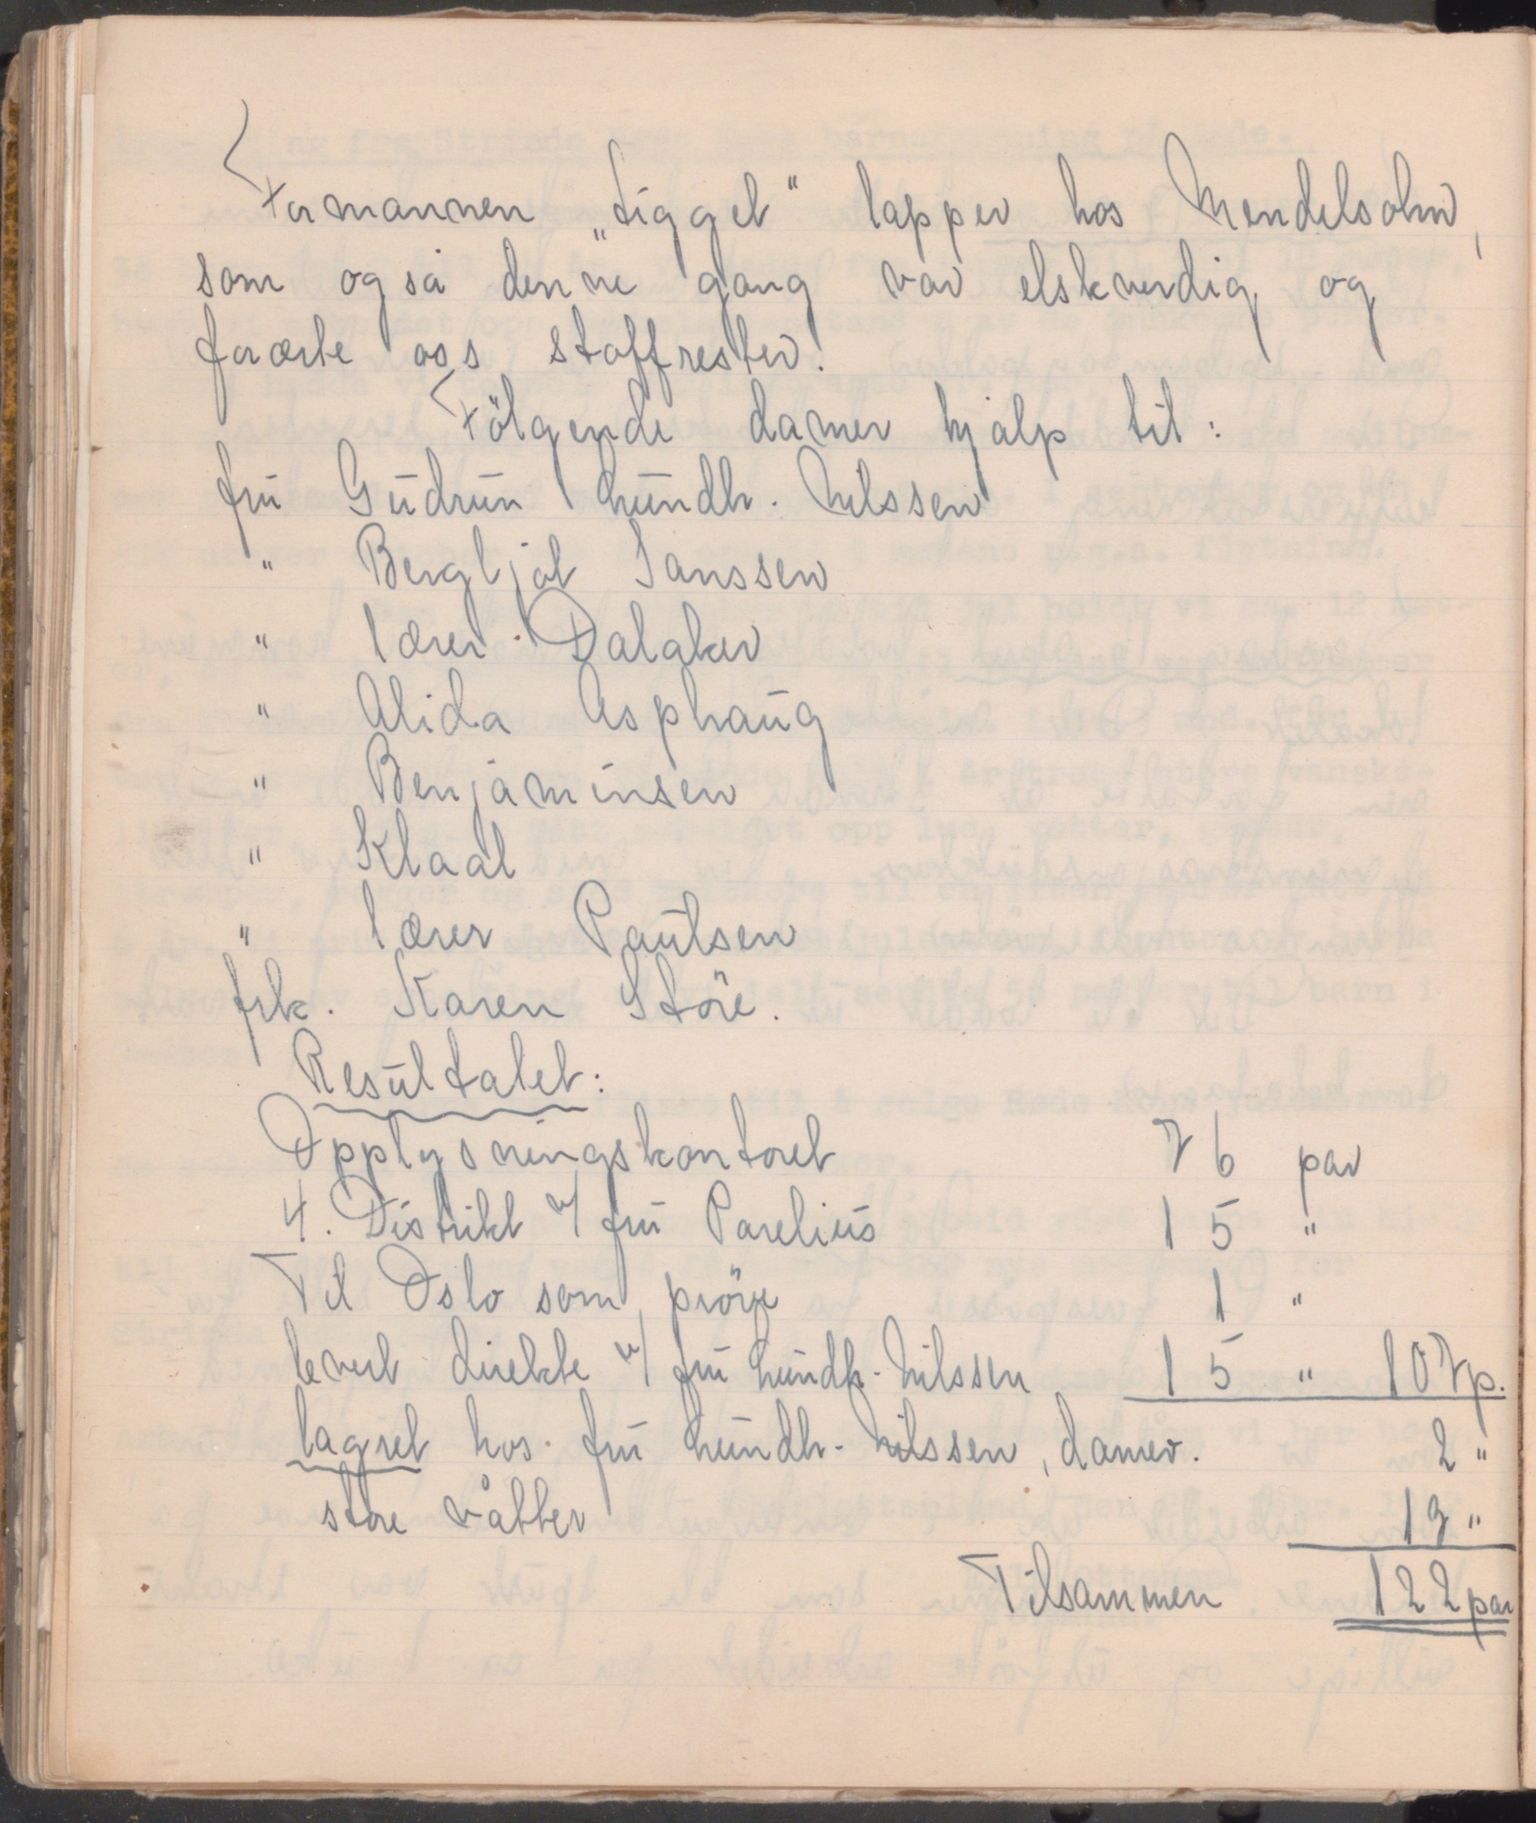 Formannen „tigget" lapper hos Mendelsohn,
som også denne gang var elskverdig og
forærte oss stoffrester.
Følgende damer hjalp til:
fru Gudrun Lundh. Nilssen
" Bergljot Janssen
" lærer Dalaker
" Alida Asphaug
" Benjaminsen
" Klaal
" lærer Paulsen
frk. Karen Störe.
Resultatet:
Opplysningskontoret 76 par
4. Distrikt v/ fru Parelius 15 "
Til Oslo som pröve 1 "
levert direkte v/ fru Lundh. Nilssen 15 " 107 p.
lagret hos fru Lundh. Nilssen, damer. 2 "
store våtter 13 "
Tilsammen 122 par